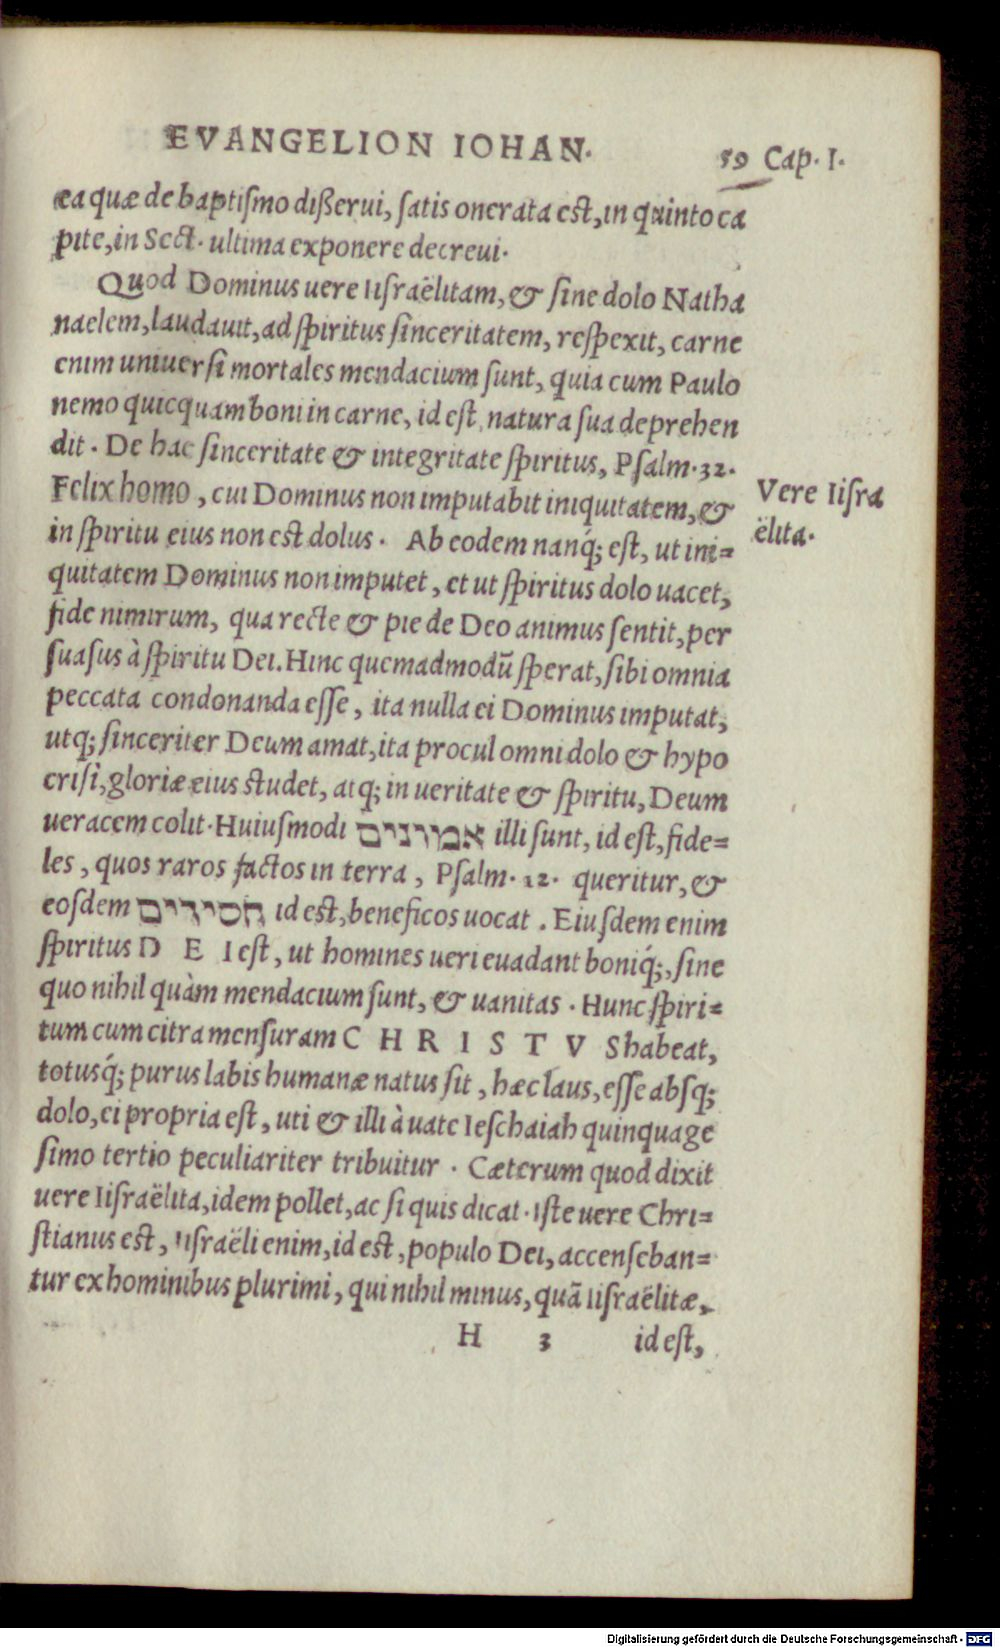 EVANGELION IOHAN.
59 Cap. I.
ea quæ de baptiſmo dißerui, ſatis onerata eſt, in quinto ca
pite, in Sect. ultima exponere decreui.
Quod Dominus uere Iiſraëlitam, & ſine dolo Natha
naelem, laudauit, ad ſpiritus ſinceritatem, reſpexit, carne
enim uniuerſi mortales mendacium ſunt, quia cum Paulo
nemo quicquam boni in carne, id eſt, natura ſua deprehen
dit. De hac ſinceritate & integritate ſpiritus, Pſalm. 32.
Felix homo, cui Dominus non imputabit iniquitatem, &
in ſpiritu eius non eſt dolus. Ab eodem nanq́; eſt, ut ini=
quitatem Dominus non imputet, et ut ſpiritus dolo uacet,
fide nimirum, qua recte & pie de Deo animus ſentit, per
ſuaſus à ſpiritu Dei. Hinc quemadmodũ ſperat, ſibi omnia
peccata condonanda eſſe, ita nulla ei Dominus imputat,
utq; ſinceriter Deum amat, ita procul omni dolo & hypo
criſi, gloriæ eius ſtudet, atq; in ueritate & ſpiritu, Deum
ueracem colit. Huiuſmodi אמונים illi ſunt, id eſt, fide=
les, quos raros factos in terra, Pſalm. 12. queritur, &
eoſdem חסידים id eſt, beneficos uocat. Eiuſdem enim
ſpiritus D E I eſt, ut homines ueri euadant boniq́;, ſine
quo nihil quàm mendacium ſunt, & uanitas. Hunc ſpiri=
tum cum citra menſuram C H R I S T V S habeat,
totusq́; purus labis humanæ natus ſit, hæc laus, eſſe abſq;
dolo, ei propria eſt, uti & illi à uate Ieſchaiah quinquage
ſimo tertio peculiariter tribuitur. Cæterum quod dixit
uere Iiſraëlita, idem pollet, ac ſi quis dicat. Iſte uere Chri=
ſtianus eſt, Iiſraëli enim, id eſt, populo Dei, accenſeban=
tur ex hominibus plurimi, qui nihil minus, quã Iiſraëlitæ,
H 3 id eſt,
Vere Iiſra
ëlita.
Digitalisierung gefördert durch die Deutsche Forschungsgemeinschaft - DFG